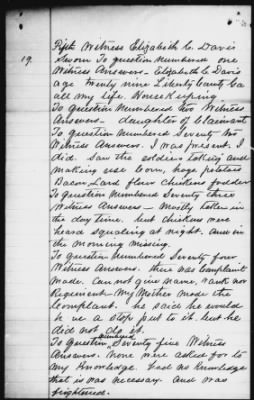 19.
Fifth Witness Elizabeth C. Davis
Sworn To question numbered one
Witness Answers - Elizabeth C Davis
age twenty nine Liberty County Ga
all my life. Housekeeping
To question Numbered two Witness
Answers - daughter of Claimant
To question numbered Seventy two
Witness Answers. I was present. I
did. Saw the soldiers taking and
making use Corn, hogs potatoes
Bacon Lard flour chickens fodder
To question Numbered Seventy three
Witness Answers - Mostly taken in
the day time. but chickens were
heard squaling at night. and in
the morning missing.
To question Numbered Seventy four
Witness Answers. there was complaint
made. Can not give name, rank nor
Regiment - My Mother made the
Complaint. he said he would
put a stop to it. but he
did not do it.
To question numbered Seventy five Witness
Answers. None were asked for to
my Knowledge. had no Knowledge
that is was necessary. And was
frightened.